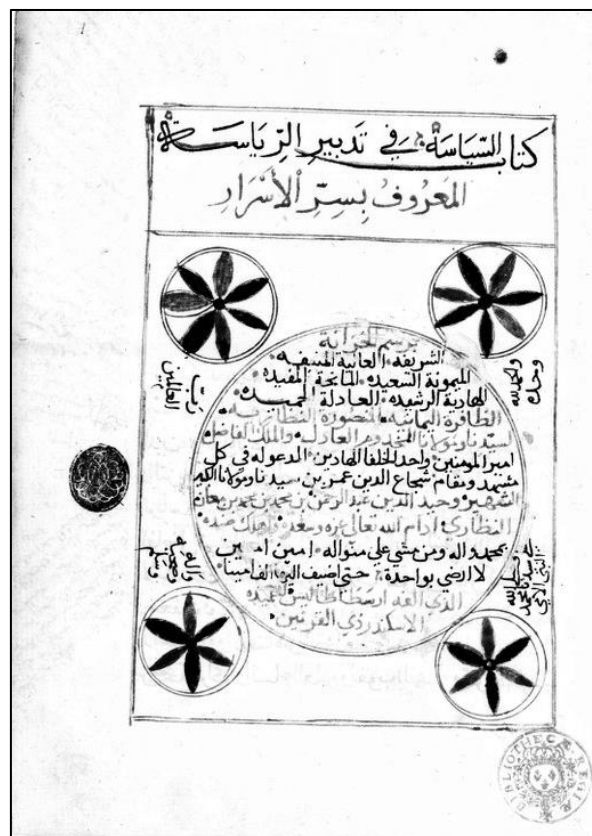 كتاب السّياسة في تدبير الرّياسة
المَعروفُ بِسِرِّ الأَسْرَارِ
برسم الخزانة
الشريفة العالية المنيفه
الميمونة السعيده المفيده
الهادية الرشيده العادلة الحميده
الظافرة اليمانيه المنصورة النظاريه
لسيدنا ومولانا المخدوم العادل والملك الفاضل
امير المومنين واحد الخلفا الهادين المدعو له في كل
مشهد ومقام شجاع الدين عمر بن سيدنا ومولانا
الشهير وحيد الدين عبد الرحمن بن محمد بن محمد بن
النظاري ادام الله تعالى عزه وسعده واهلك ضده
بمحمد واله ومن مشي علي منواله امين امين
لا ارضي بواحدة حتي اضيف اليها الف امينا
الذي الفه ارسطاطاليس لتلميذه
الاسكندر ذي القرنين
وحدك
والحمد لله
ربّ
العالمين
واله
وصحبه
وسلم
BIBLIOTHECÆ REGIÆ